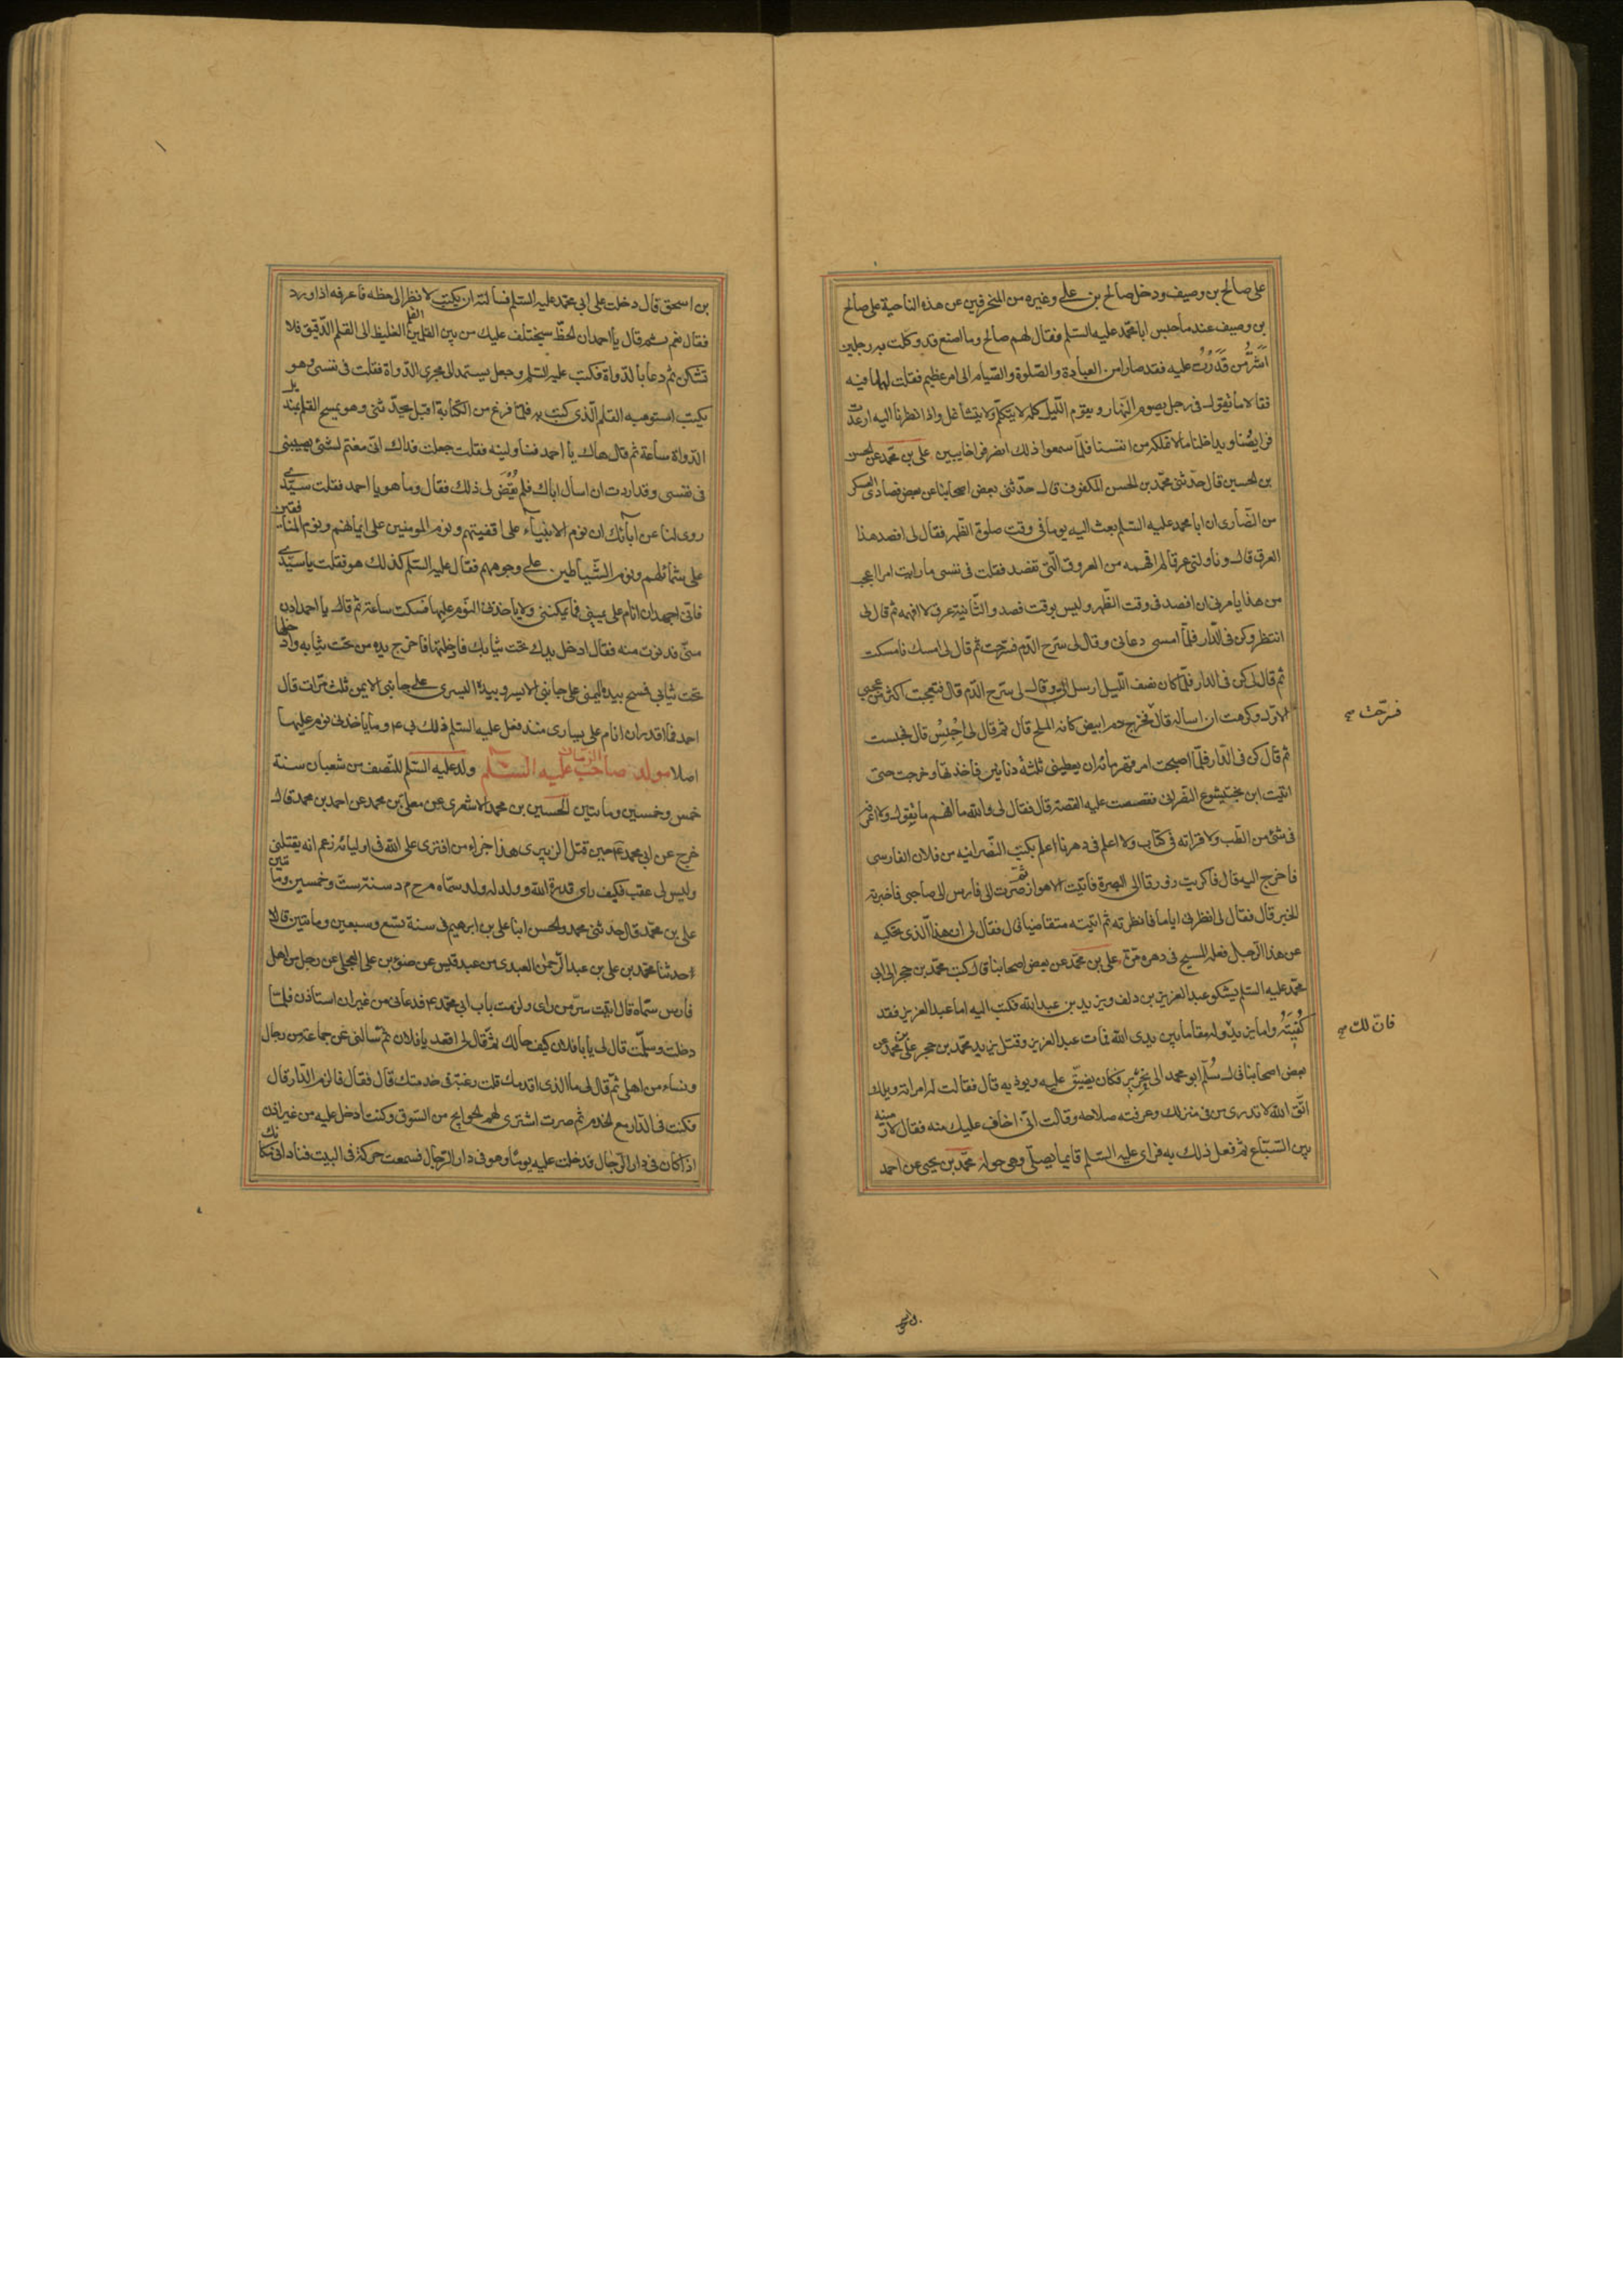 على صالح بن وصيف ودخل صالح بن على وغيره من المنحرفين عن هذه الناحية على صالح
بن وصيف عند ما حبس ابا محمد عليه السلم فقال لهم صالح وما اصنع قد وكلت به رجلين
اَشَرُّ من قَدَرْتُ عليه فقد صارا من العبادة والصّلوة والصّيام الى امر عظيم فقلت لهما ما فيه
فقالا ما نقول فى رجل يصوم النهار ويقوم اللّيل كله لا يتكلّم ولا يتشاغل واذا نظرنا اليه ارعدت
فرايصُنا ويداخلنا ما لا نملكه من انفسنا فلمّا سمعوا ذلك انصرفوا خايبين على بن محمد عن الحسن
بن الحسين قال حدّثنى محمّد بن الحسن المكفوف قال حدّثنى بعض اصحابنا عن بعض فصادى العسكر
من النّصارى ان ابا محمد عليه السّلم بعث اليه يوما فى وقت صلوة الظّهر فقال لى افصد هذا
العرق قال وناولنى عرقا لم افهمه من العروق الّتى تفصد فقلت فى نفسى ما رايت امرا اعجب
من هذا يامرنى ان افصد فى وقت الظّهر وليس بوقت فصد والثّانية عرق لا افهمه ثم قال لى
انتظر وكن فى الدّار فلمّا امسى دعانى وقال لى سَرّح الدّم فسَرّحت ثم قال لى امسك فامسكت
ثم قال لى كن فى الدار فلمّا كان نصف اللّيل ارسل الىّ وقال لى سَرّح الدّم قال فتعجبت اكثر من عجبى
الاوّل وكرهت ان اساله قال فخرج دم ابيض كانه الملح قال ثم قال لى اِحْبِسْ قال فحبست
ثم قال كن فى الدّار فلمّا اصبحت امر قهرمانه ان يعطينى ثلثة دنانير فاخذتها وخرجت حتى
اتيت ابن بختيشوع النّصرانى فقصصت عليه القصة قال فقال لى والله ما افهم ما تقول ولا اعرفه
فى شئ من الطّب ولا قراته فى كتاب ولا اعلم فى دهرنا اعلم بكتب النّصرانيه من فلان الفارسى
فاخرج اليه قال فاكريت زورقا الى البصرة فاتيت الاهواز ثم صرت الى فارس الى صاحبى فاخبرته
الخبر قال فقال لى انظرنى اياما فانظرته ثم اتيته متقاضيا قال فقال لى ان هذا الّذى تحكيه
عن هذا الرّجل فعله المسيح فى دهره مرّة على بن محمّد عن بعض اصحابنا قال كتب محمّد بن حجر الى ابى
محمّد عليه السلم يشكو عبد العزيز بن دلف ويزيد بن عبد الله فكتب اليه اما عبد العزيز فقد
كُفِيتَهُ واما يزيد وله مقاما بين يدى الله فمات عبد العزيز وقتل يزيد محمّد بن حجر على بن محمد عن
بعض اصحابنا قال سُلّم ابو محمد الى نِحْرِير فكان يضيّق عليه ويوذيه قال فقالت له امراته ويلك
اتّق الله لا تدرى من فى منزلك وعرفته صلاحه وقالت انّى اخاف عليك منه فقال لارمينه
بين السّباع ثم فعل ذلك به فراى عليه السّلم قايما يصلّى وهى حوله محمّد بن يحيى عن احمد
فسرّحت صح
فان لك صح
بن اسحق
بن اسحق قال دخلت على ابى محمد عليه السّلم فسالته ان يكتب لا نظر الى خطه فاعرفه اذا ورد
فقال نعم ثم قال يا احمد ان الخطّ سيختلف عليك من بين القلم الغليظ الى القلم الدّقيق فلا
القلم
تشكن ثم دعا بالدّواة فكتب عليه السّلم وجعل يستمد الى مجرى الدّواة فقلت فى نفسى وهو
يكتب استوهبه القلم الّذى كتب به فلمّا فرغ من الكتابة اقبل يحدّثنى وهو يمسح القلم بمنديل
الدّواة ساعة ثم قال هاك يا احمد فناولنيه فقلت جعلت فداك انّى مغتم لشئ يصيبنى
فى نفسى وقد اردت ان اسال اباك فلم يُقْضَ لى ذلك فقال وما هو يا احمد فقلت سيّدى
روى لنا عن آبائك ان نوم الانبياء على اقفيتهم ونوم المومنين على ايمانهم ونوم المنافقين
على شمائلهم ونوم الشّياطين على وجوههم فقال عليه السّلم كذلك هو فقلت يا سيّدى
فانّى اجهد ان انام على يمينى فما يمكننى ولا ياخذنى النّوم عليها فسكت ساعة ثم قال يا احمد ادن
منّى فدنوت منه فقال ادخل يدك تحت ثيابك فادخلتها فاخرج يده من تحت ثيابه وادخلها
تحت ثيابى فمسح بيده اليمنى على جانبى الايسر وبيده اليسرى على جانبى الايمن ثلث مرّات قال
احمد فما اقدر ان انام على يسارى منذ فعل عليه السّلم ذلك بى وما ياخذنى نوم عليها
اصلا مولد صاحب الزمان عليه السّلم ولد عليه السّلم للنّصف من شعبان سنة
خمس وخمسين ومائتين الحسين بن محمد الاشعرى عن معلّى بن محمد عن احمد بن محمد قال
خرج عن ابى محمد ع حين قتل الزبيرى هذا جزاء من افترى على الله فى اوليائه زعم انه يقتلنى
وليس لى عقب فكيف راى قدرة الله وولد له ولد سمّاه م ح م د سنة ستّ وخمسين ومائتين
على بن محمّد قال حدثنى محمد والحسن ابنا على بن ابرهيم فى سنة تسع وسبعين ومائتين قالا
حدثنا محمّد بن على بن عبد الرّحمن العبدى من عبد قيس عن ضوء بن على العجلى عن رجل من اهل
فارس سمّاه قال اتيت سرّ من راى ولزمت باب ابى محمّد ع فدعانى من غير ان استاذن فلمّا
دخلت وسلّمت قال لى يا با فلان كيف حالك ثم قال لى اقعد يا فلان ثم سالنى عن جماعة من رجال
ونساء من اهلى ثم قال لى ما الذى اقدمك قلت رغبة فى خدمتك قال فقال فالزم الدّار قال
فكنت فى الدّار مع الخدم ثم صرت اشترى لهم الحوايج من السّوق وكنت ادخل عليه من غير اذن
اذا كان فى دار الرّجال فدخلت عليه يوما وهو فى دار الرّجال فسمعت حركة فى البيت فنادانى مكانك